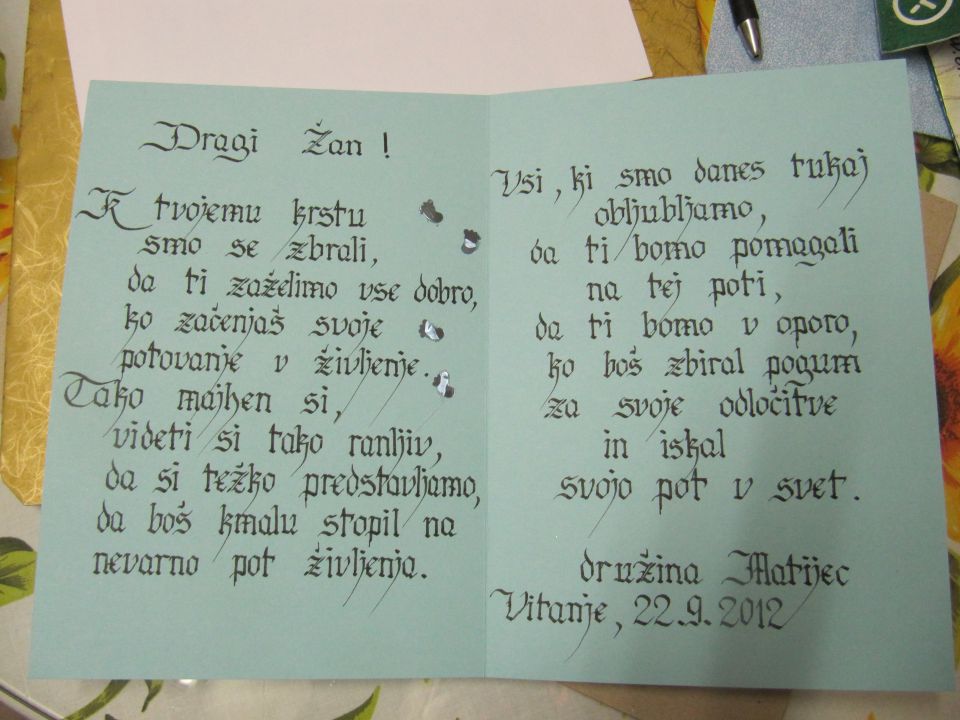 Dragi Žan !
K tvojemu krstu
smo se zbrali,
da ti zaželimo vse dobro,
ko začenjaš svoje
potovanje v življenje.
Tako majhen si,
videti si tako ranljiv,
da si težko predstavljamo,
da boš kmalu stopil na
nevarno pot življenja.
Vsi, ki smo danes tukaj
obljubljamo,
da ti bomo pomagali
na tej poti,
da ti bomo v oporo,
ko boš zbiral pogum
za svoje odločitve
in iskal
svojo pot v svet.
družina Matijec
Vitanje, 22.9.2012